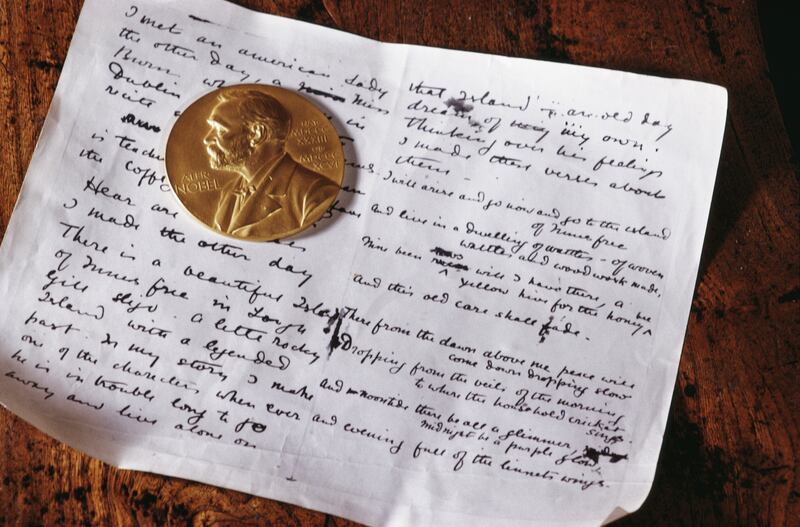 I met an american Lady
the other day, a Miss
Burn.
Dublin wh in
recite a
is teach
the coffe
Hear are
I made the other day
There is a beautiful Island
of Innis free in Lough
Gill Sligo. A little rocky
Island with a legended
past. In my story I make
one of the characters when ever
he is in trouble long to go
away and live alone on
ALFR.
NOBEL
NAT.
MDCCC
XXXIII
OB.
MDCCC
XCVI
that Island – an old day
dream of my own.
Thinking over his feelings
I made these verses about
them –
I will arise and go now and go to the island
of Innis free
and live in a dwelling of wattles – of woven
wattles and wood work made,
Nine bean rows will I have there, a
yellow hive for the honey
And this old care shall fade.
There from the dawn above me peace will
come down dropping slow
Dropping from the veils of the morning
to where the household cricket
sings.
and noontide there be all a glimmer,
midnight be a purple glow,
and evening full of the linnets wings.